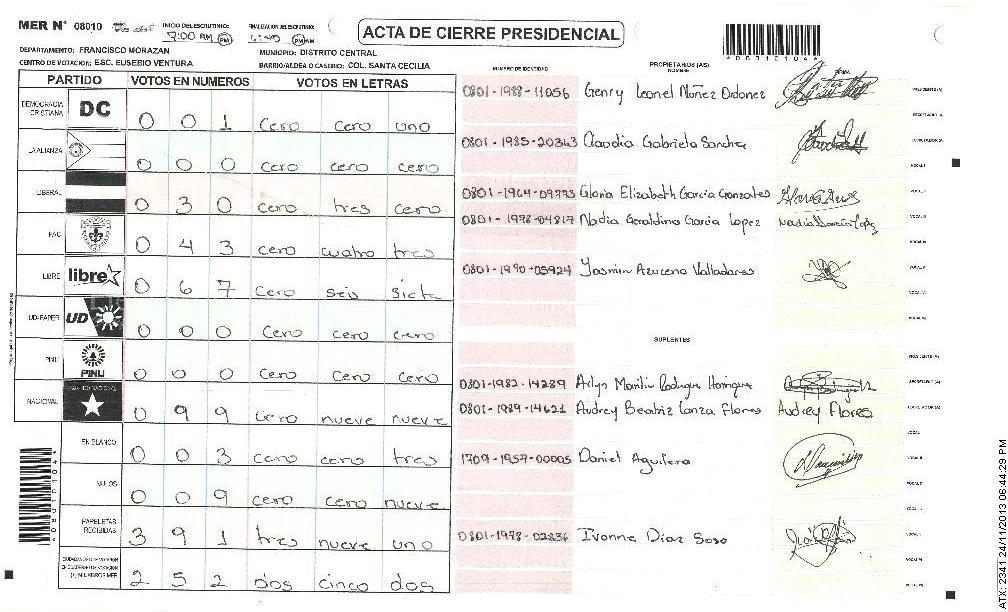 MER N° 08010
INICIO DEL ESCRUTINIO: 7:00 AM PM
FINALIZACION DEL ESCRUTINIO: AM PM
ACTA DE CIERRE PRESIDENCIAL
A080101044
DEPARTAMENTO: FRANCISCO MORAZAN
MUNICIPIO: DISTRITO CENTRAL
CENTRO DE VOTACION: ESC. EUSEBIO VENTURA
BARRIO/ALDEA O CASERIO: COL. SANTA CECILIA
PARTIDO VOTOS EN NUMEROS VOTOS EN LETRAS
DEMOCRACIA CRISTIANA DC 0 0 1 cero cero uno
LA ALIANZA 0 0 0 cero cero cero
LIBERAL 0 3 0 cero tres cero
PAC 0 4 3 cero cuatro tres
LIBRE libre 0 6 7 cero seis siete
UD-FAPER UD 0 0 0 cero cero cero
PINU PINU 0 0 0 cero cero cero
NACIONAL PARTIDO NACIONAL 0 9 9 cero nueve nueve
EN BLANCO 0 0 3 cero cero tres
NULOS 0 0 9 cero cero nueve
PAPELETAS RECIBIDAS 3 9 1 tres nueve uno
2 5 2 dos cinco dos
A080101044
NUMERO DE IDENTIDAD
PROPIETARIOS (AS)
NOMBRE
FIRMA
0801-1988-11056 Genry Leonel Nuñez Ordonez
PRESIDENTE (A)
SECRETARIO (A)
0801-1985-20343 Claudia Gabriela Sanchez
ESCRUTADOR (A)
VOCAL I
0801-1964-09773 Gloria Elizabeth Garcia Gonzales
0801-1978-04817 Nadia Geraldina Garcia Lopez Nadia Garcia Lopez
0801-1990-05924 Yasmin Azucena Valladares
SUPLENTES
PRESIDENTE (A)
0801-1982-14289
SECRETARIO (A)
0801-1989-14621 Audrey Beatriz Lanza Flores Audrey Flores
ESCRUTADOR (A)
1709-1957-00005 Daniel Aguilera
0801-1978-02836 Ivonne Diaz Sosa
ATX: 2341 24/11/2013 06:44:29 PM